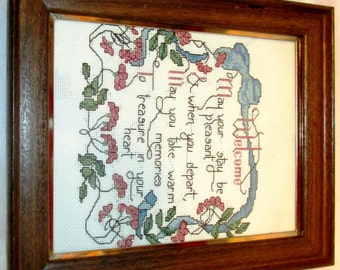 Welcome
May your stay be
pleasant
& when you depart,
May you take warm
memories
To treasure in your
heart